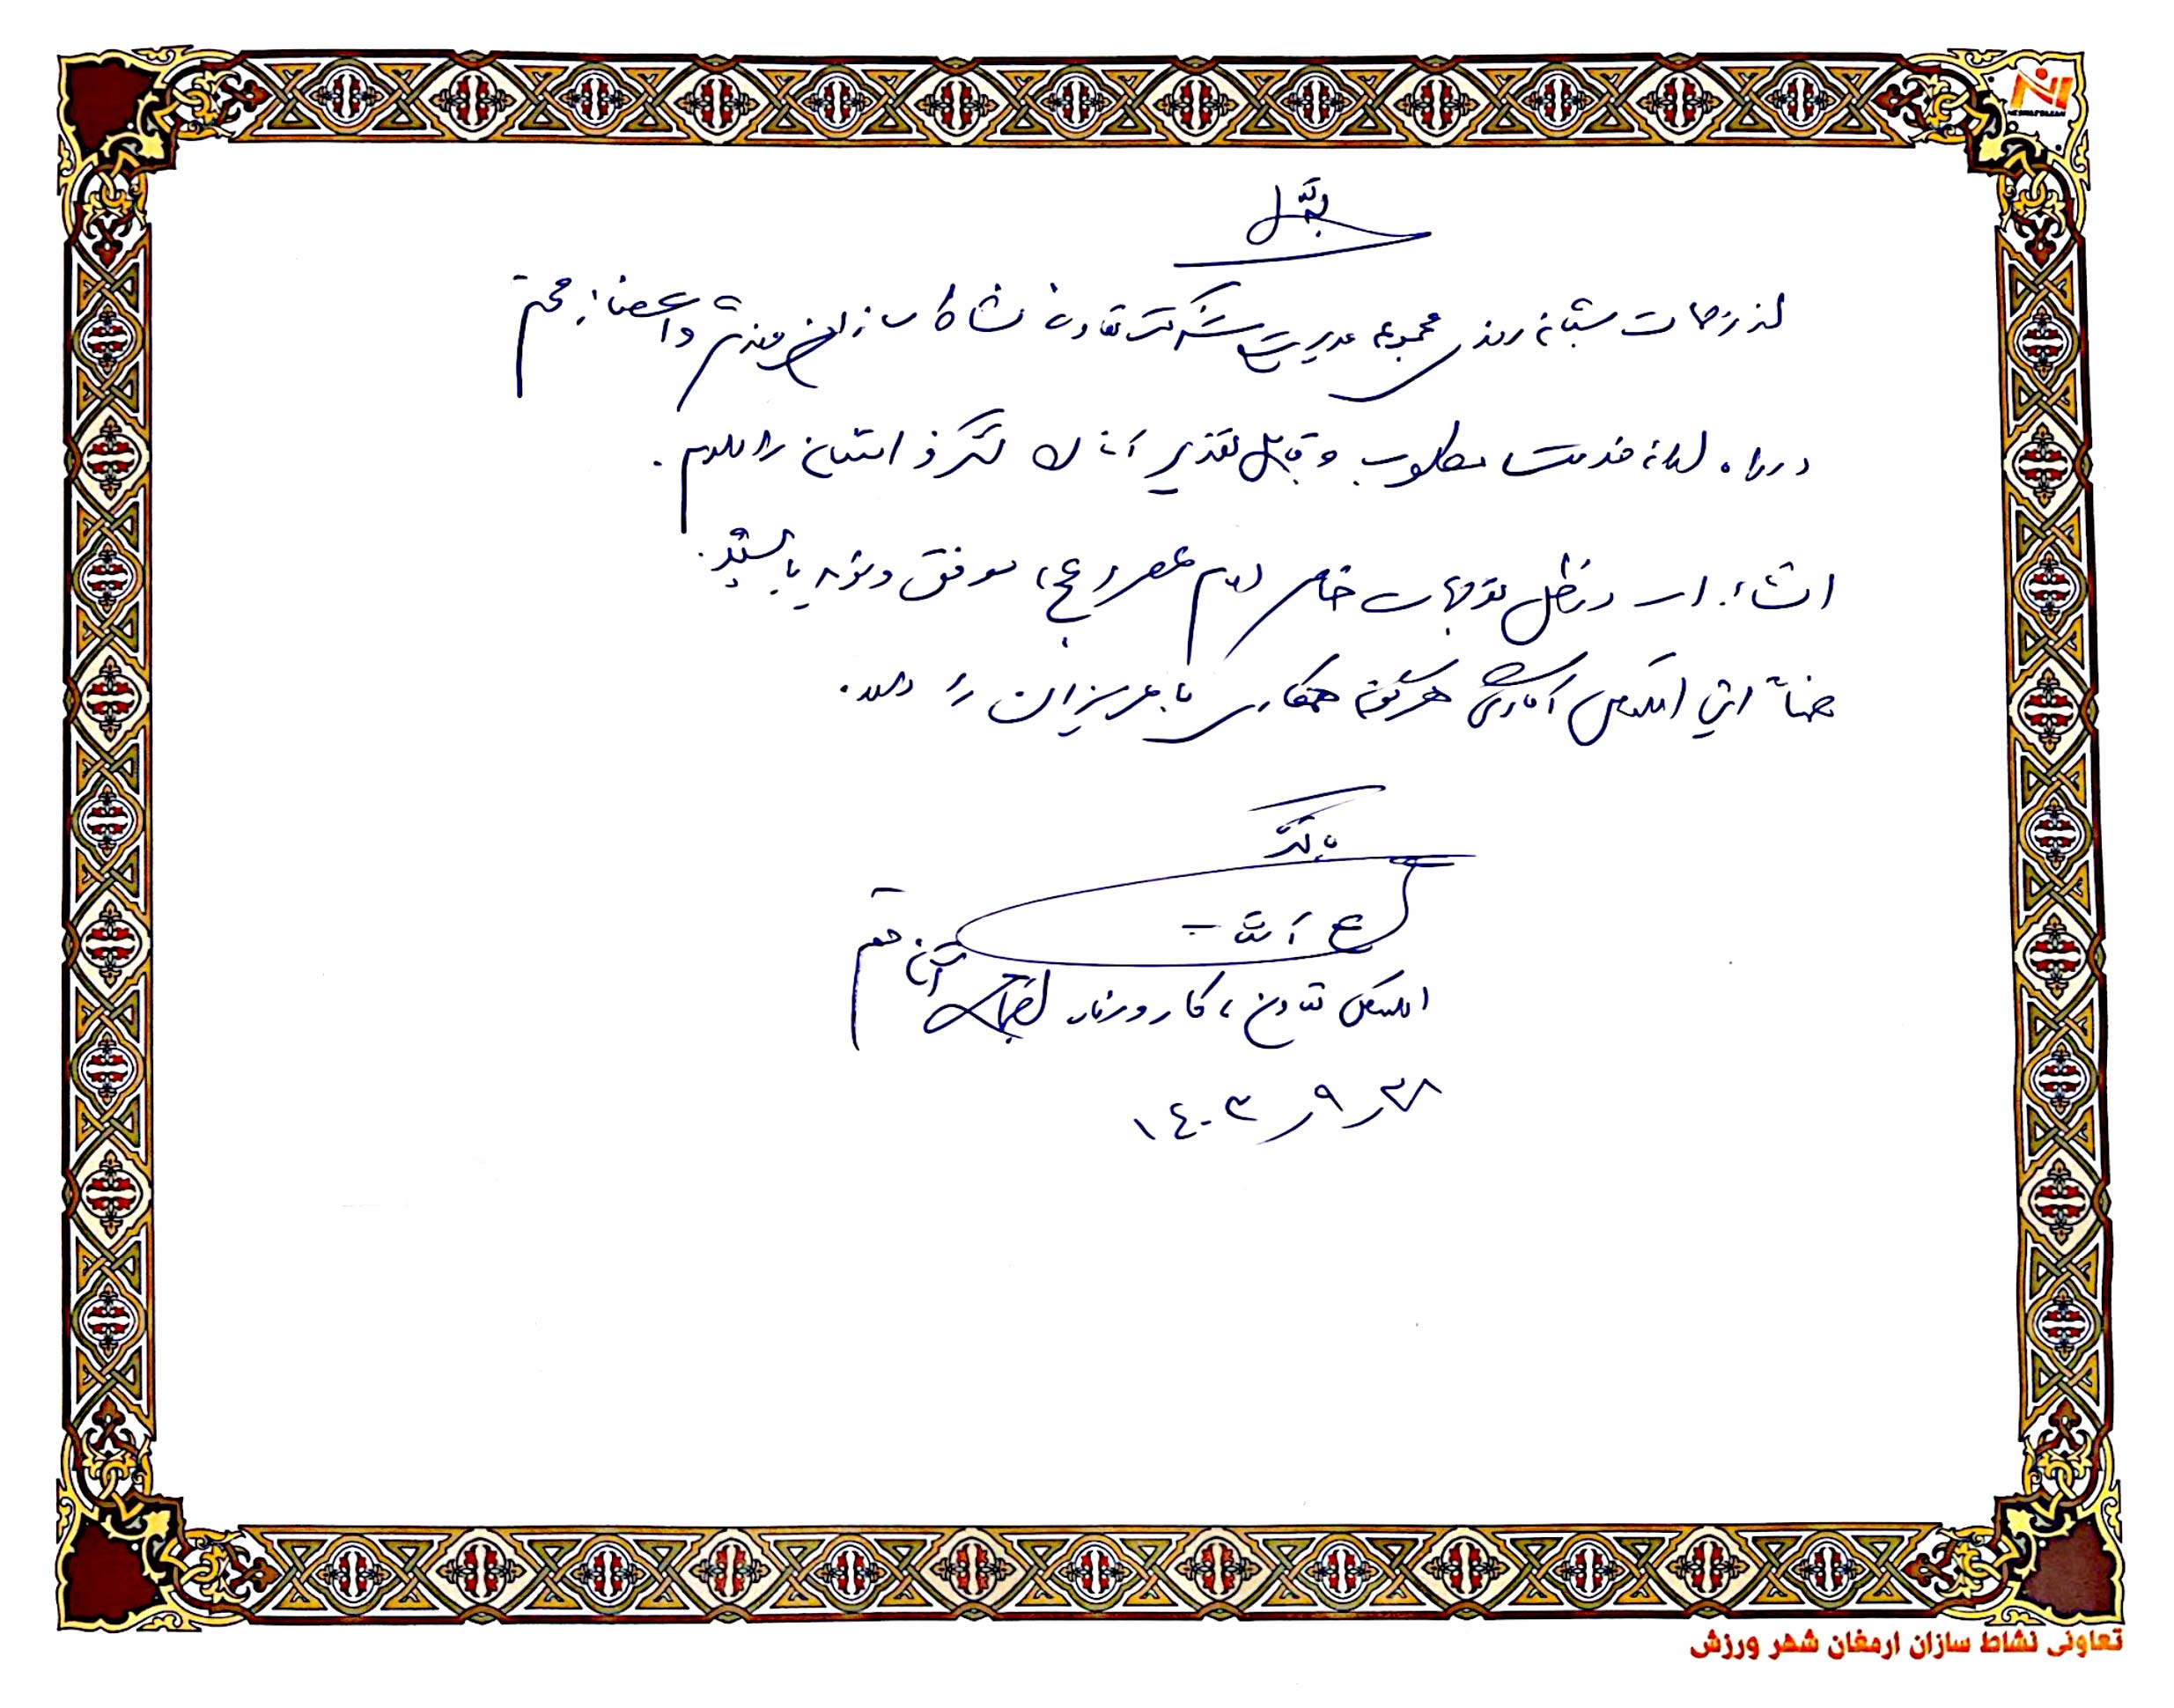 بسمه تعالی
از زحمات شبانه روزی مجموعه مدیریت شرکت تعاونی نشاط سازان ورزش و اعضای محترم
در راه ارائه خدمت مطلوب و قابل تقدیر آنان تشکر و امتنان را دارم.
انشاءا... در ظل توجهات خاص امام عصر (عج) موفق و موید باشید.
ضمناً این اتاق آمادگی هرگونه همکاری با عزیزان را دارد.
با تشکر
اتاق تعاون، کار و رفاه اجتماعی استان قم
۱٤۰۳/۹/۲۸
تعاونی نشاط سازان ارمغان شهر ورزش